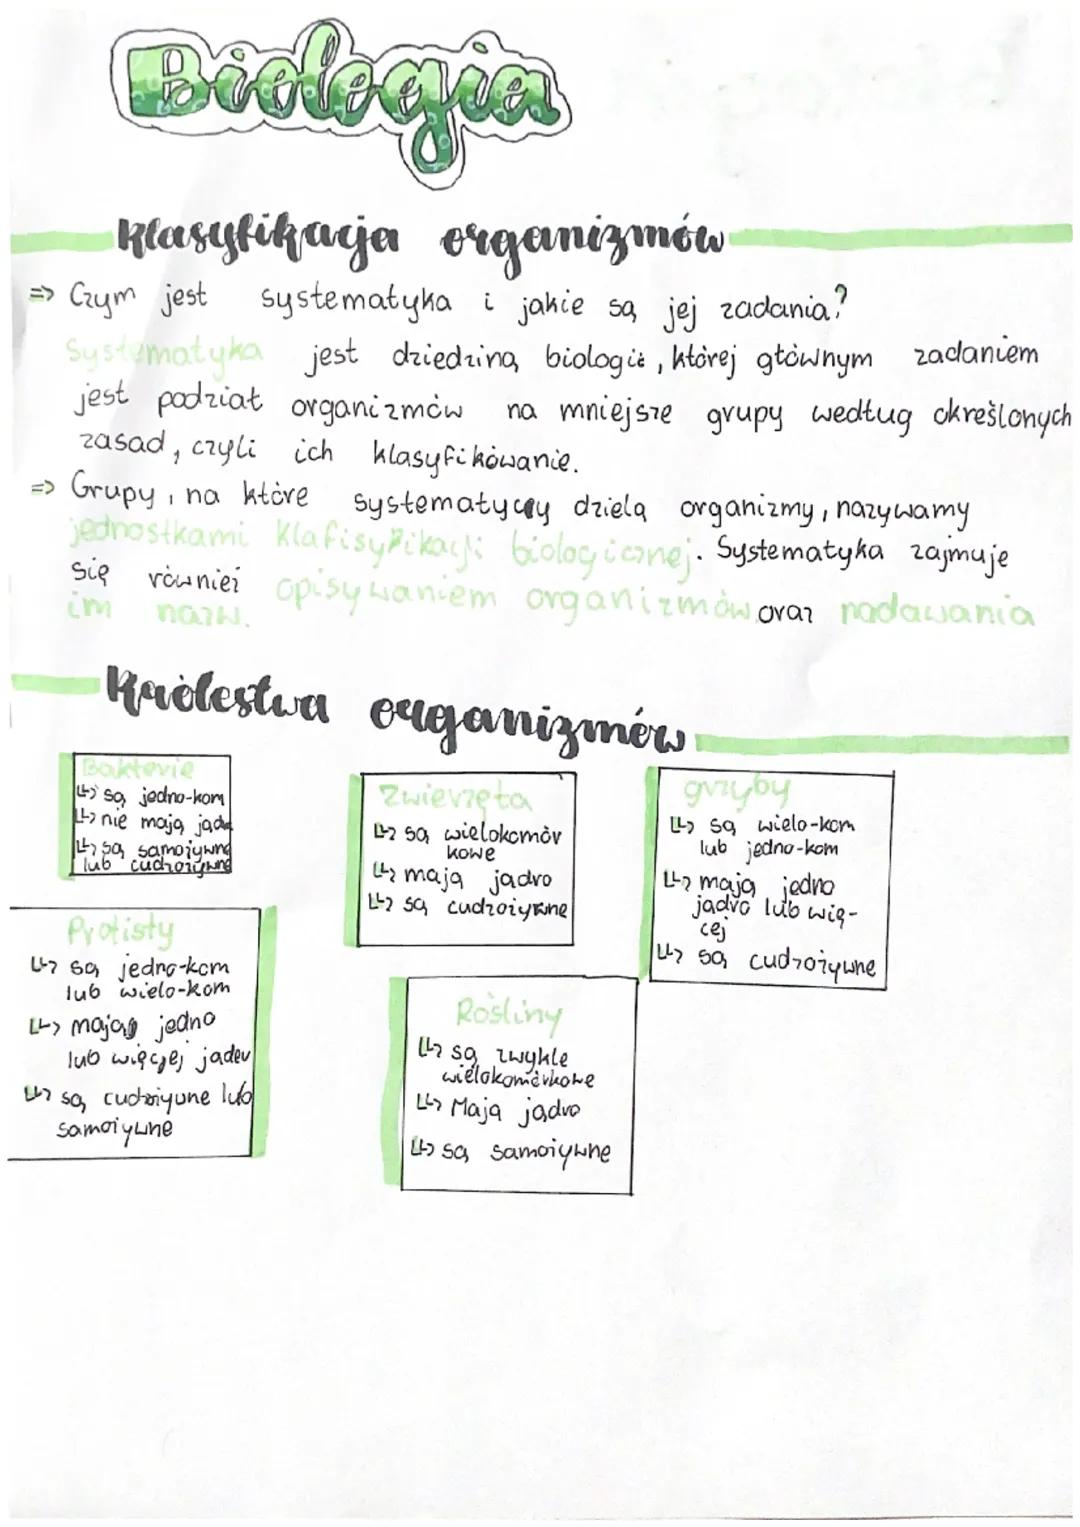 Biologia
Klasyfikacja organizmów
=> Czym jest systematyka i jakie są jej zadania?
Systematyka jest dziedziną biologii, której głównym zadaniem
jest podział organizmów na mniejsze grupy według określonych
zasad, czyli ich klasyfikowanie.
=> Grupy, na które systematycy dzielą organizmy, nazywamy
jednostkami Klafisyfikacji biologicznej. Systematyka zajmuje
się również opisywaniem organizmów oraz nadawania
im nazw.
Królestwa organizmów
Bakterie
↳ są jedno-kom
↳ nie mają jądra
↳ są samożywne
lub cudzożywne
Zwierzęta
↳ są wielokomór
kowe
↳ mają jadro
↳ są cudzożywne
grzyby
↳ są wielo-kom
lub jedno-kom
↳ mają jedno
jadro lub wię-
cej
↳ są cudzożywne
Protisty
↳ są jedno-kom
lub wielo-kom
↳ mają jedno
lub więcej jader
↳ są cudzożywne lub
samożywne
Rośliny
↳ są zwykle
wielokomórkowe
↳ Mają jądro
↳ są samożywne